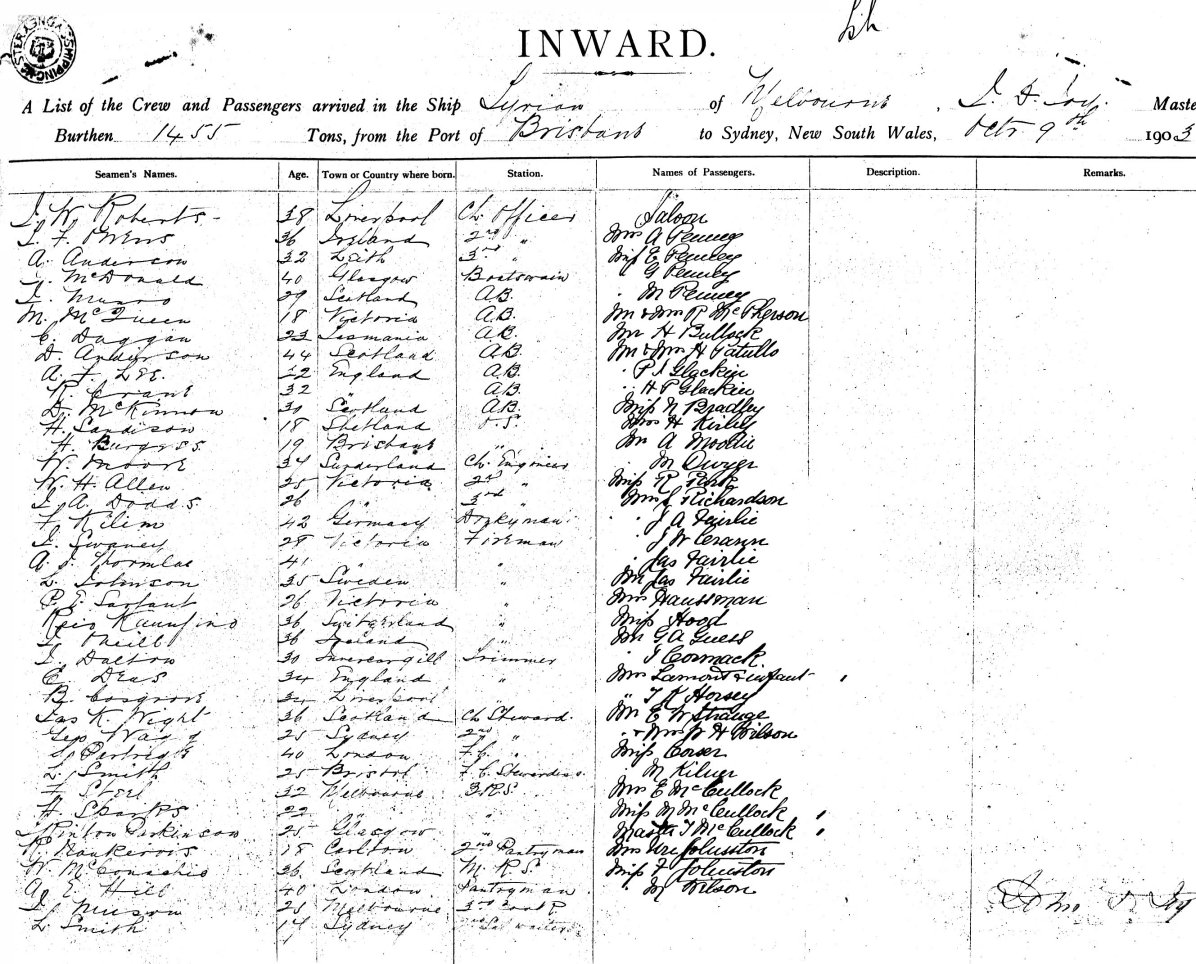 INWARD.
A List of the Crew and Passengers arrived in the Ship Syrian of Melbourne, Master
Burthen 1455 Tons, from the Port of Brisbane to Sydney, New South Wales, Octr 9th 1903
Seamen's Names. Age. Town or Country where born. Station. Names of Passengers. Description. Remarks.
J. W. Roberts 38 Liverpool Ch. Officer Saloon
36 Ireland 2nd " Mrs A Penney
A. Anderson 32 Leith 3rd " Miss E Penney
McDonald 40 Glasgow Boatswain G Penney
Munro 29 Scotland A.B. M Penney
M. McQueen 18 Victoria A.B. Mr & Mrs R McPherson
C. Duggan 23 Tasmania A.B. Mr H Bullock
D. Anderson 44 Scotland A.B. Mr & Mrs H Patullo
A. F. Lee 22 England A.B. Glackin
R. Grant 32 " A.B. H P Glackin
D. McKinnon 30 Scotland A.B. Miss N Bradley
H. Sandison 18 Shetland O.S. Mrs H Kirley
H. Burgess 19 Brisbane " Mr A Moodie
W. Moore 34 Sunderland Ch. Engineer M Dwyer
W. H. Allen 25 Victoria 2nd " Miss R
J. A. Dodds 26 " 3rd " Mrs J Richardson
F. Kilim 42 Germany Donkyman J A Fairlie
J. Swaney 28 Victoria Fireman J W
A. J. 41 " " Jas Fairlie
L. Johnson 35 Sweden " Mr Jas Fairlie
P. E. Sartant 26 Victoria " Mrs Haussman
36 Switzerland " Miss Hood
O'Neill 36 Ireland " Mr G A Guess
J. Dalton 30 Invercargill Trimmer J Cormack
C. Deas 34 England " Mrs Lamont & infant
B. Cosgrove 34 Liverpool " " T R Horsey
Jas K. Wight 36 Scotland Ch Steward Mr E W Strange
Geo 25 Sydney 2nd " & Mrs W H Wilson
S. Partridge 40 London F.C. " Miss Corser
L. Smith 25 Bristol F.C. Stewardess M Kilner
F. Steel 32 Melbourne 3.R.S. Mrs E McCullock
H. Sparks 22 " " Miss M McCullock
Parkinson 25 Glasgow " Master T McCullock
18 Carlton 2nd Pantryman Mrs Johnston
W. McConachie 36 Scotland M. R. S. Miss F Johnston
A. E. Hill 40 London Pantryman M Wilson
J. 28 Melbourne 3rd
L. Smith 14 Sydney